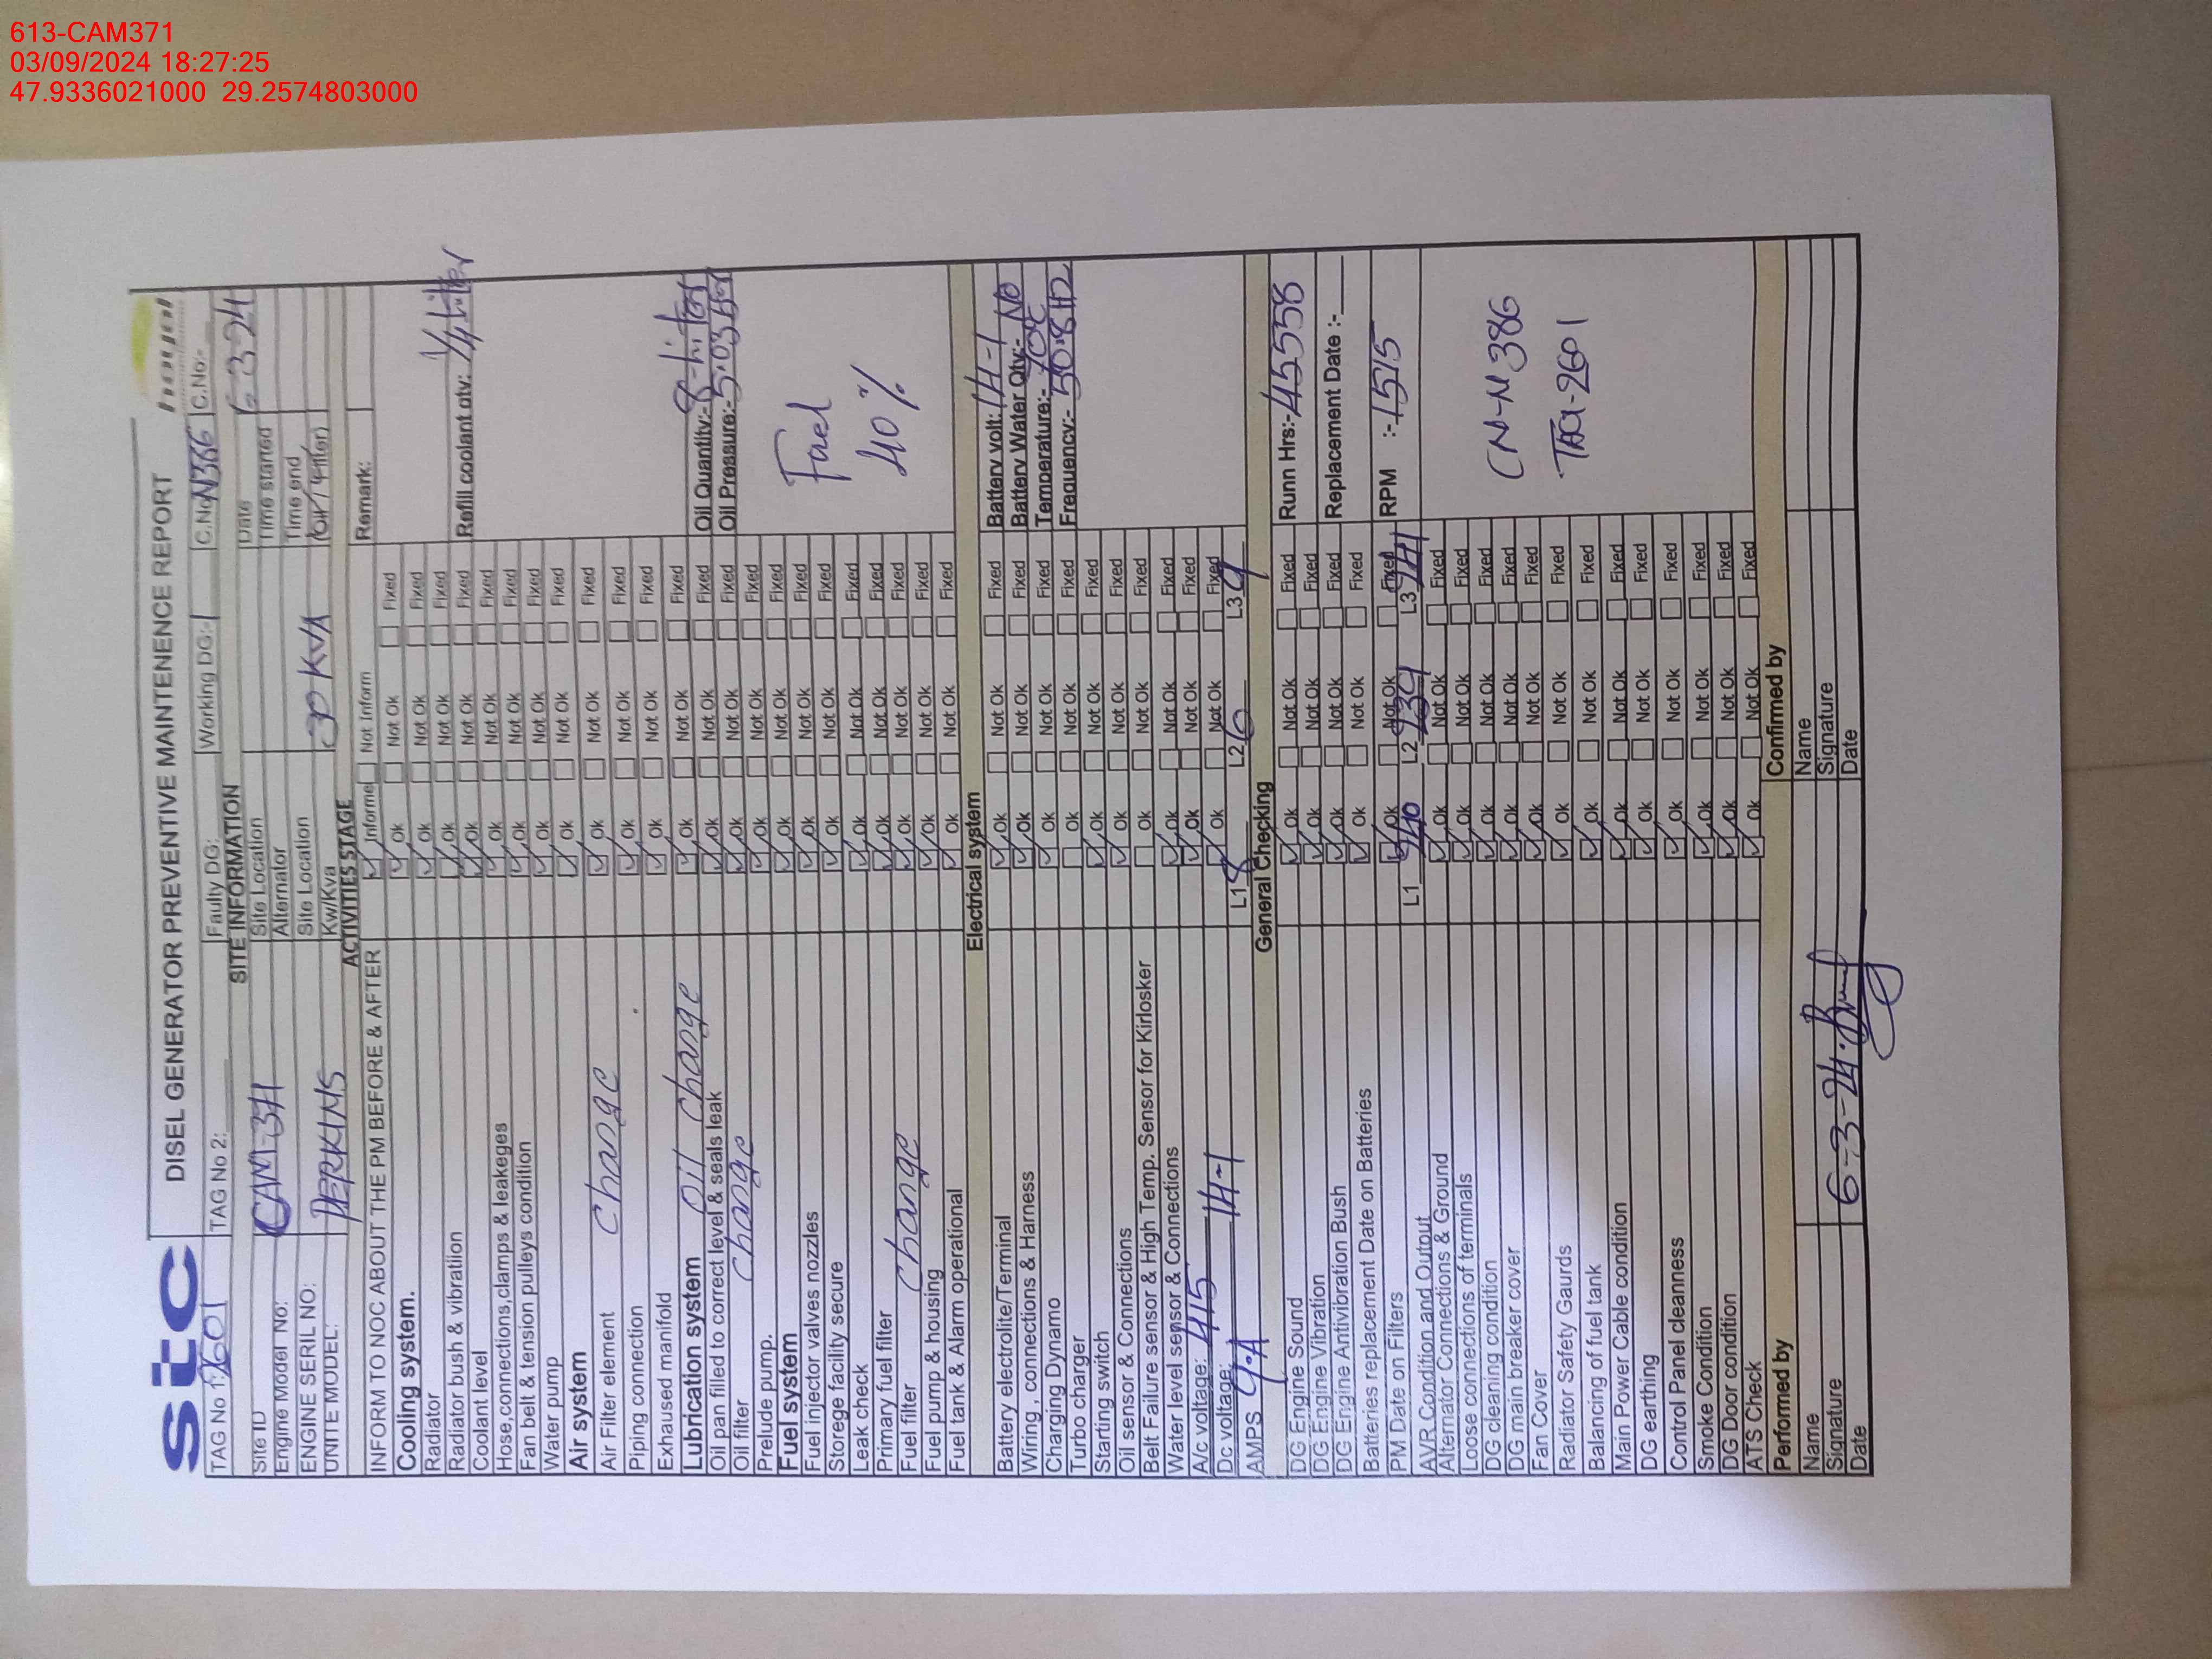 613-CAM371
03/09/2024 18:27:25
47.9336021000 29.2574803000
stc DISEL GENERATOR PREVENTIVE MAINTENENCE REPORT
TAG No 1: 2601 TAG No 2: Faulty DG: Working DG:- C.No N386 C.No:-
SITE INFORMATION
Site ID CAM-371 Site Location Date 6-3-24
Engine Model No: Alternator Time started
ENGINE SERIL NO: Site Location Time end
UNITE MODEL: PERKINS Kw/Kva 30 KVA
ACTIVITIES STAGE
INFORM TO NOC ABOUT THE PM BEFORE & AFTER Informe Not Inform Remark:
Cooling system. Ok Not Ok Fixed
Radiator Ok Not Ok Fixed
Radiator bush & vibration Ok Not Ok Fixed
Coolant level Ok Not Ok Fixed Refill coolant qty: 1/4 Liter
Hose,connections,clamps & leakeges Ok Not Ok Fixed
Fan belt & tension pulleys condition Ok Not Ok Fixed
Water pump Ok Not Ok Fixed
Air system Ok Not Ok Fixed
Air Filter element change Ok Not Ok Fixed
Piping connection Ok Not Ok Fixed
Exhaused manifold Ok Not Ok Fixed
Lubrication system oil change Ok Not Ok Fixed
Oil pan filled to correct level & seals leak Ok Not Ok Fixed Oil Quantity:- 8-Liter
Oil filter change Ok Not Ok Fixed Oil Pressure:- 5.03 bar
Prelude pump. Ok Not Ok Fixed
Fuel system Ok Not Ok Fixed
Fuel injector valves nozzles Ok Not Ok Fixed Fuel
Storege facility secure Ok Not Ok Fixed
Leak check Ok Not Ok Fixed 40%
Primary fuel filter Ok Not Ok Fixed
Fuel filter change Ok Not Ok Fixed
Fuel pump & housing Ok Not Ok Fixed
Fuel tank & Alarm operational Ok Not Ok Fixed
Electrical system
Battery electrolite/Terminal Ok Not Ok Fixed Battery volt: 14-1
Wiring , connections & Harness Ok Not Ok Fixed Battery Water Qty:- No
Charging Dynamo Ok Not Ok Fixed Temperature:- 70c
Turbo charger Ok Not Ok Fixed Frequency:- 50.8 HZ
Starting switch Ok Not Ok Fixed
Oil sensor & Connections Ok Not Ok Fixed
Belt Failure sensor & High Temp. Sensor for Kirlosker Ok Not Ok Fixed
Water level sensor & Connections Ok Not Ok Fixed
A/c voltage: 415 Ok Not Ok Fixed
Dc voltage: 14-1 Ok Not Ok Fixed
AMPS 9.A L1 8 L2 6 L3 9
General Checking
DG Engine Sound Ok Not Ok Fixed Runn Hrs:- 45558
DG Engine Vibration Ok Not Ok Fixed
DG Engine Antivibration Bush Ok Not Ok Fixed Replacement Date :-
Batteries replacement Date on Batteries Ok Not Ok Fixed
PM Date on Filters Ok Not Ok Fixed RPM :- 1515
L1 240 L2 239 L3 241
AVR Condition and Outout Ok Not Ok Fixed
Alternator Connections & Ground Ok Not Ok Fixed
Loose connections of terminals Ok Not Ok Fixed
DG cleaning condition Ok Not Ok Fixed CN-N386
DG main breaker cover Ok Not Ok Fixed
Fan Cover Ok Not Ok Fixed
Radiator Safety Gaurds Ok Not Ok Fixed TAG-2601
Balancing of fuel tank Ok Not Ok Fixed
Main Power Cable condition Ok Not Ok Fixed
DG earthing Ok Not Ok Fixed
Control Panel cleanness Ok Not Ok Fixed
Smoke Condition Ok Not Ok Fixed
DG Door condition Ok Not Ok Fixed
ATS Check Ok Not Ok Fixed
Performed by Confirmed by
Name Name
Signature Signature
Date 6-3-24 Date